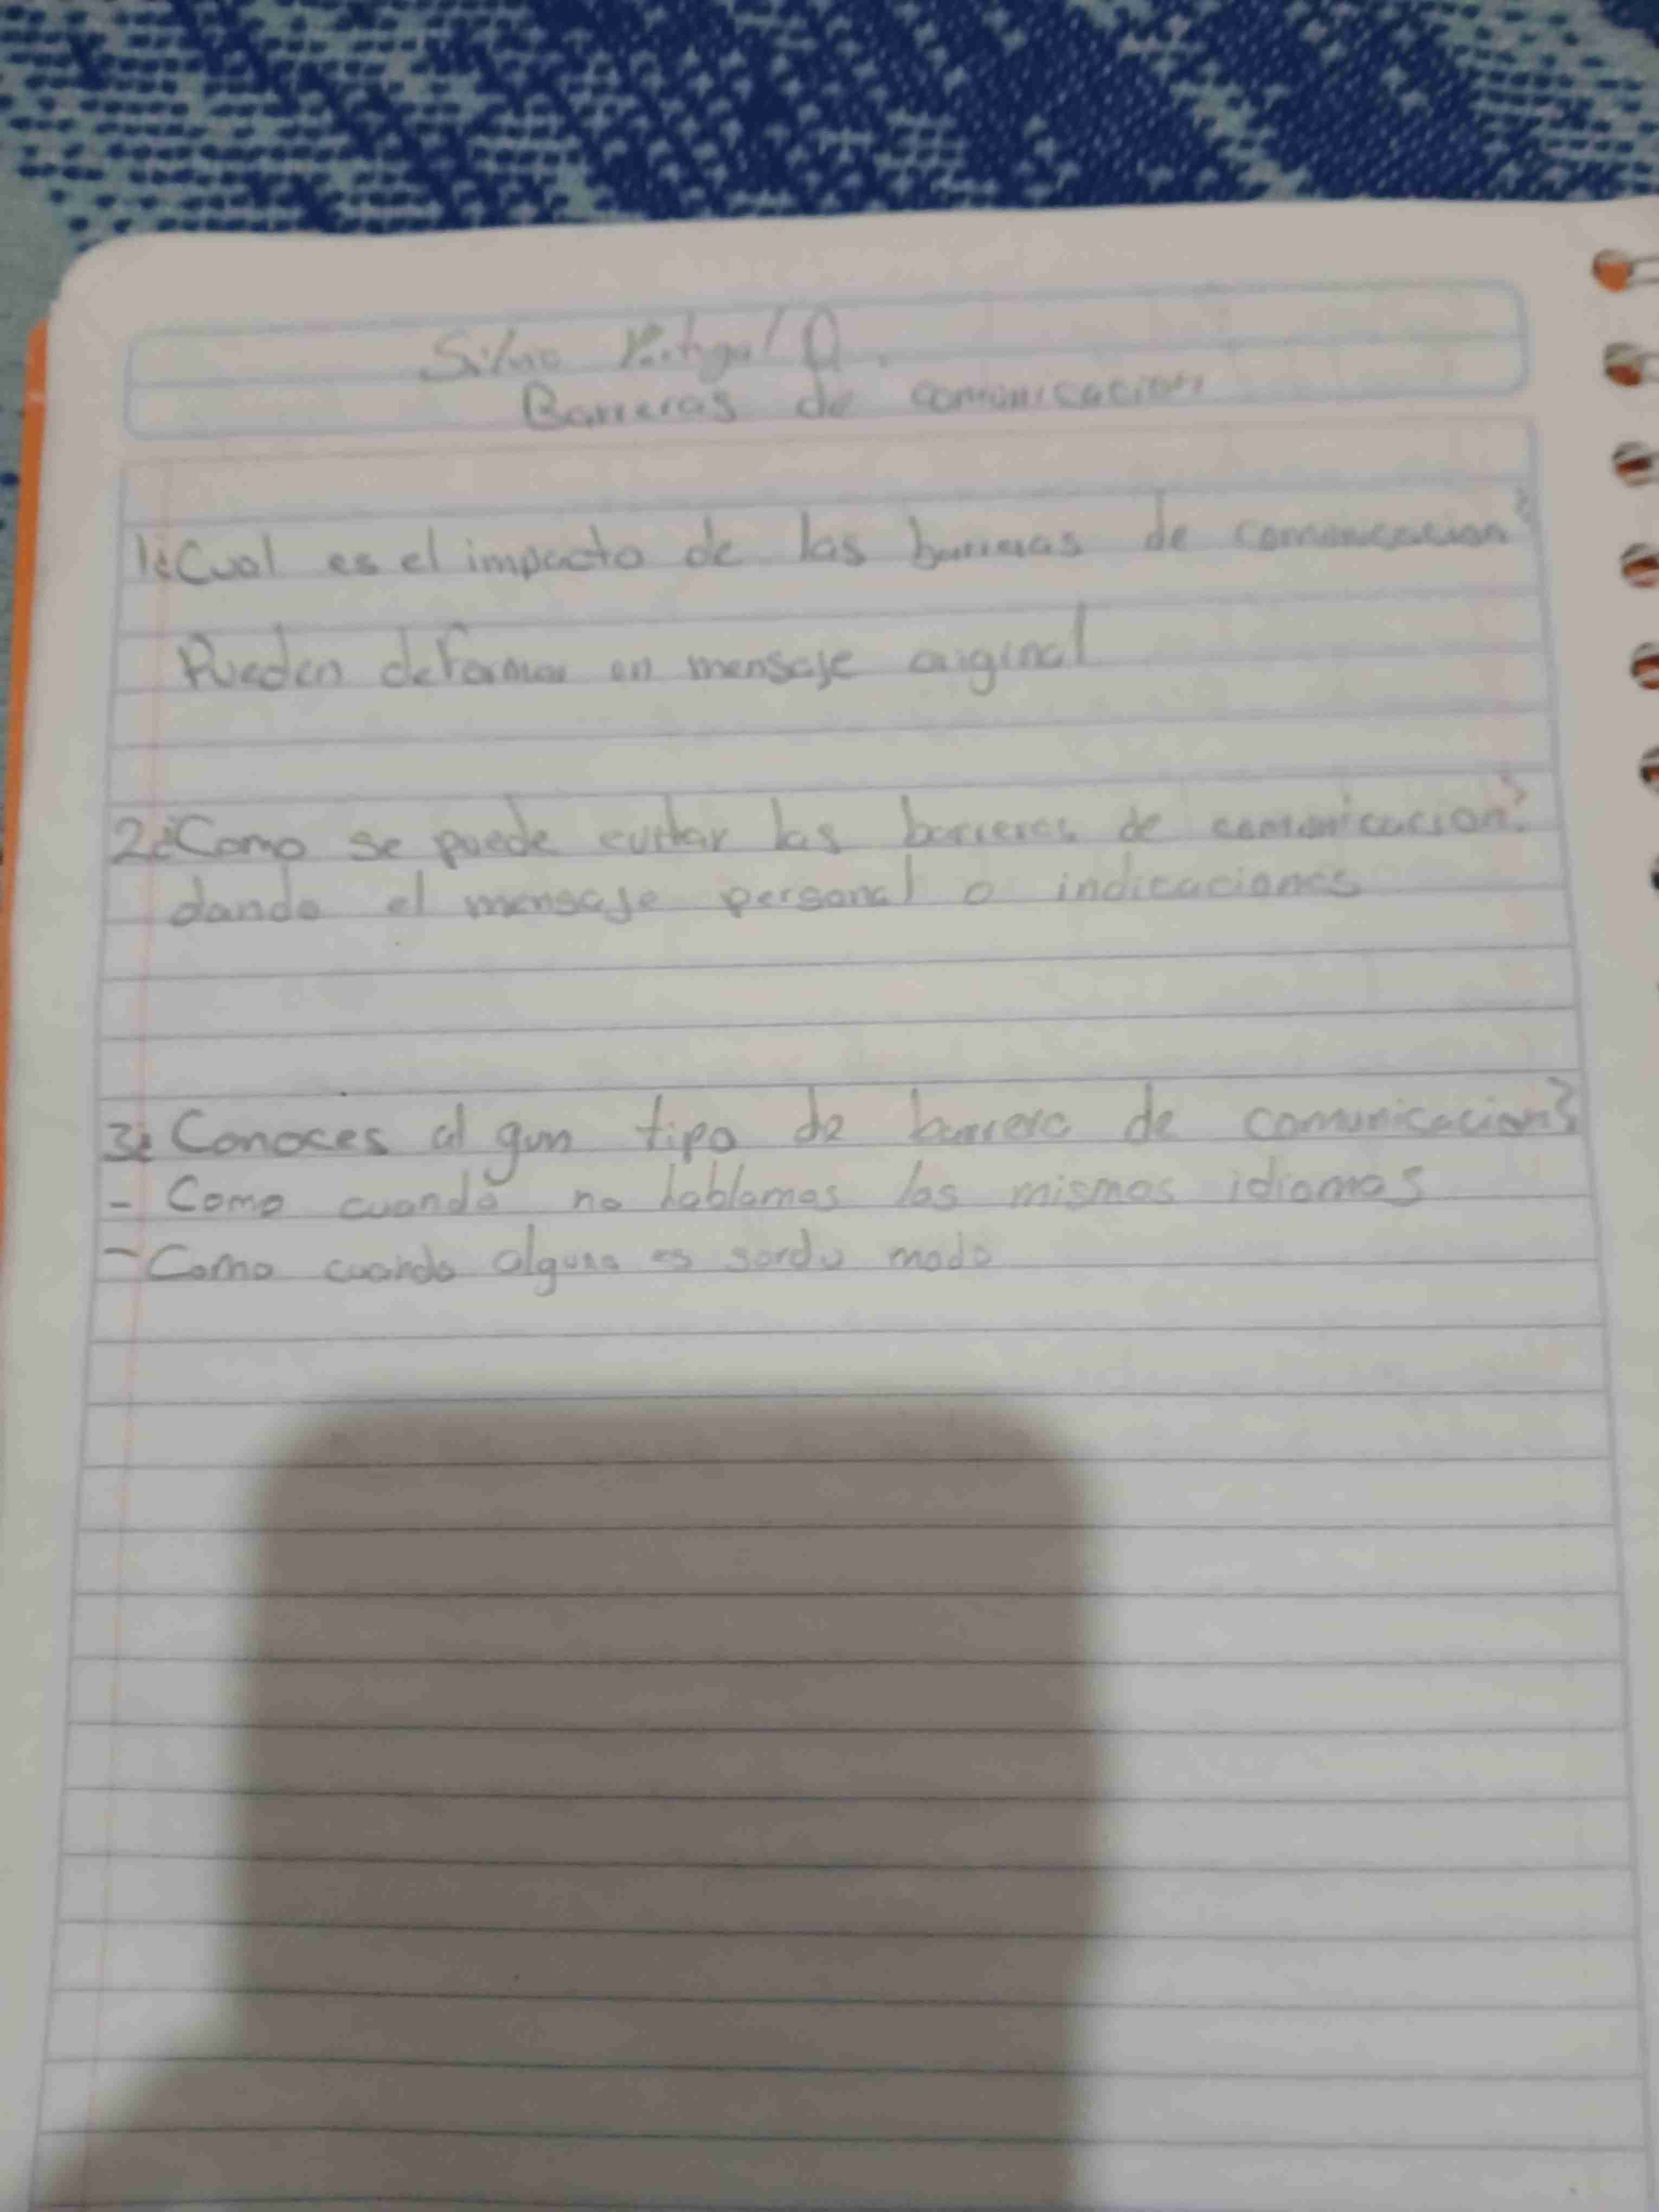 Barreras de comunicacion
1¿Cual es el impacto de las barreras de comunicacion?
Pueden deformar un mensaje original
2¿Como se puede evitar las barreras de comunicacion?
dando el mensaje personal o indicaciones
3¿Conoces al gun tipo de barrera de comunicacion?
- Como cuando no hablamos los mismos idiomas
- Como cuando alguno es sordo modo